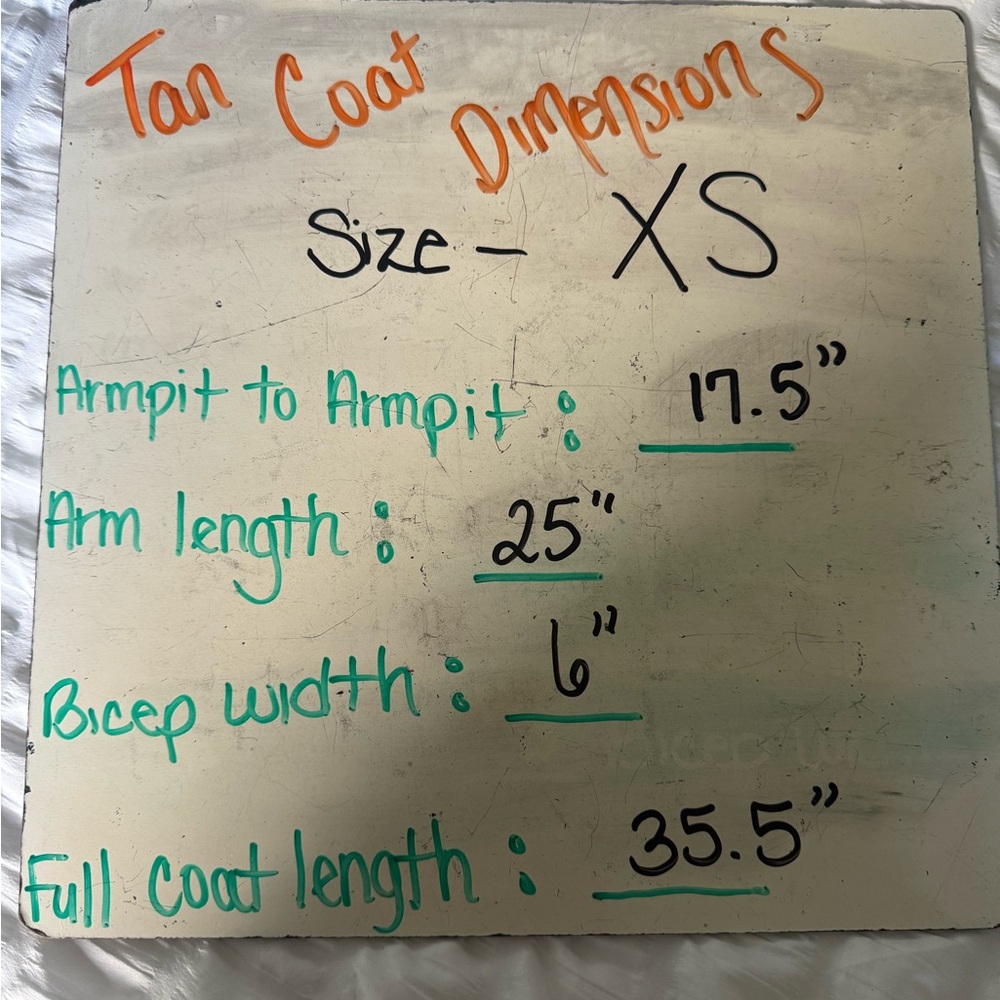 Tan Coat Dimensions
Size - XS
Armpit to Armpit : 17.5"
Arm length : 25"
Bicep width : 6"
Full coat length : 35.5"